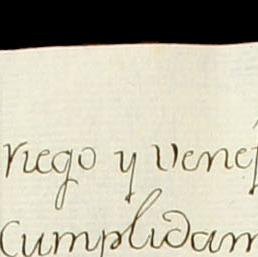 riego y venef
Cumplidam